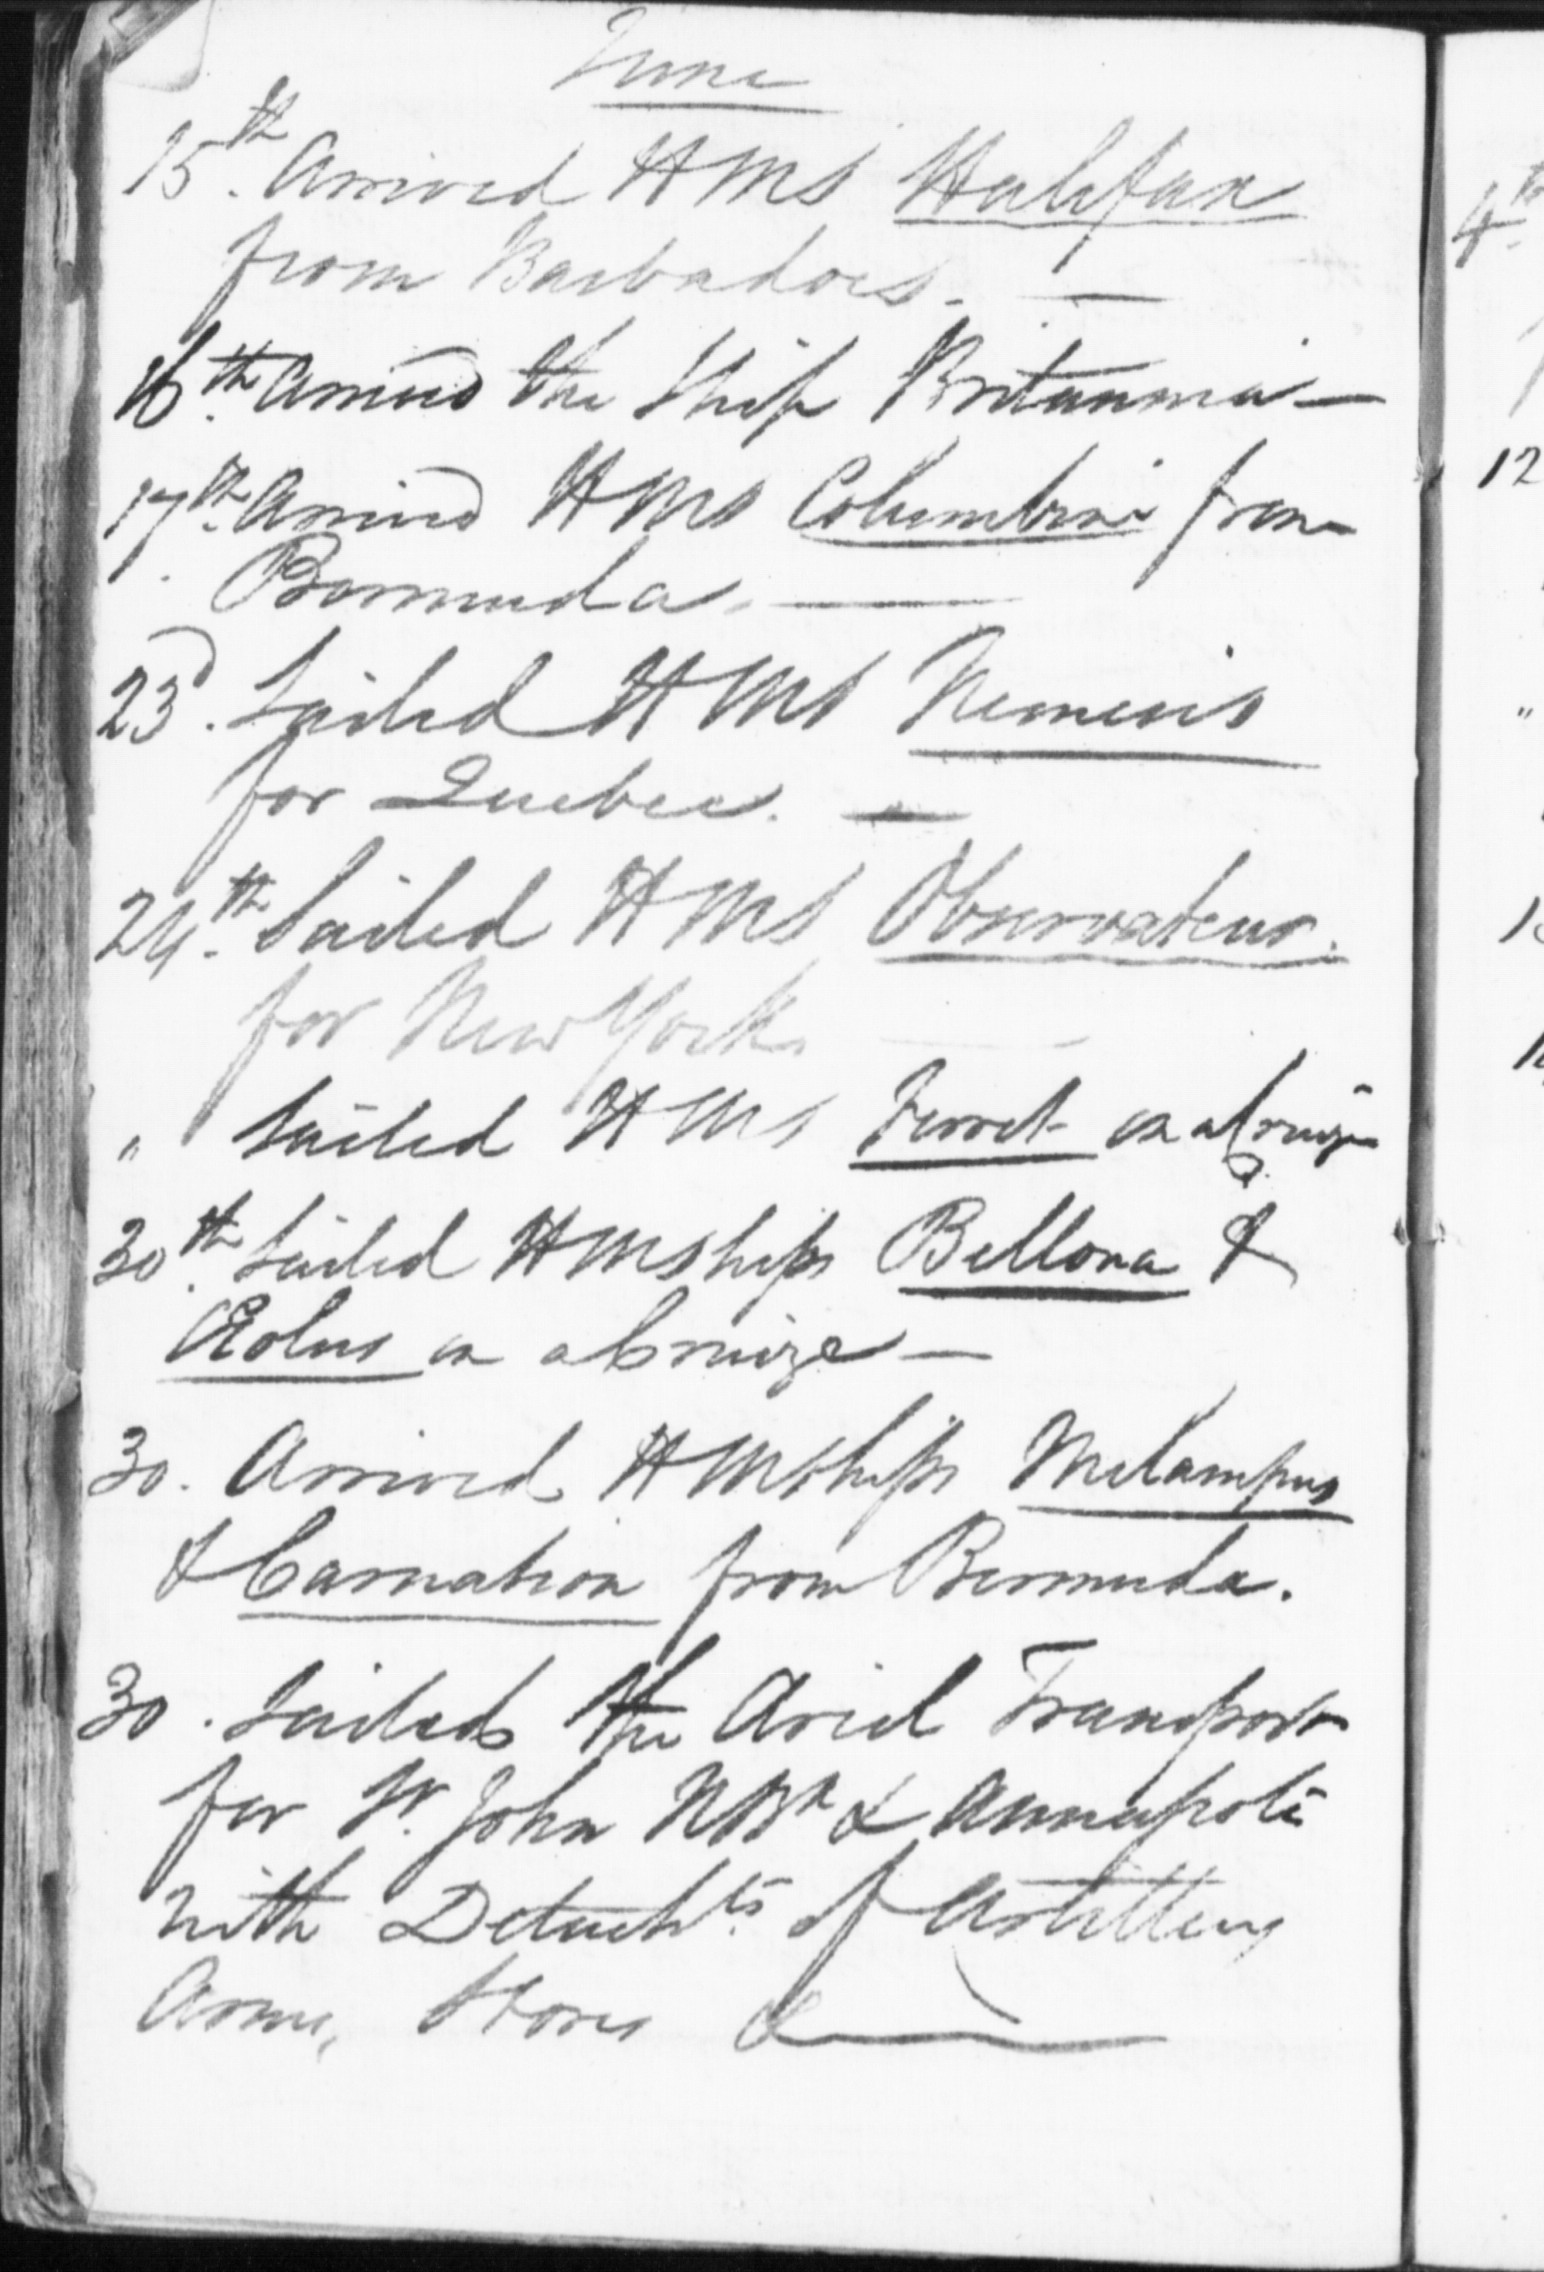 June
15th. Arrived HMS Halifax
from Barbadoes. —
16th. Arrived the Ship Britannia —
17th. Arrived HMS Columbine from
Bermuda. —
23d. Sailed HMS Nemesis
for Quebec. —
24th. Sailed HMS Observateur.
for New York. —
" Sailed HMS Ferret on a Cruize
30th. Sailed HMShips Bellona &
Æolus on a Cruize —
30. Arrived HMShips Melampus
& Carnation from Bermuda.
30. Sailed the Ariel Transport
for St. John NBk & Annapolis
with Detachts. of Artillery
Arms, Stores &
4th
12
"